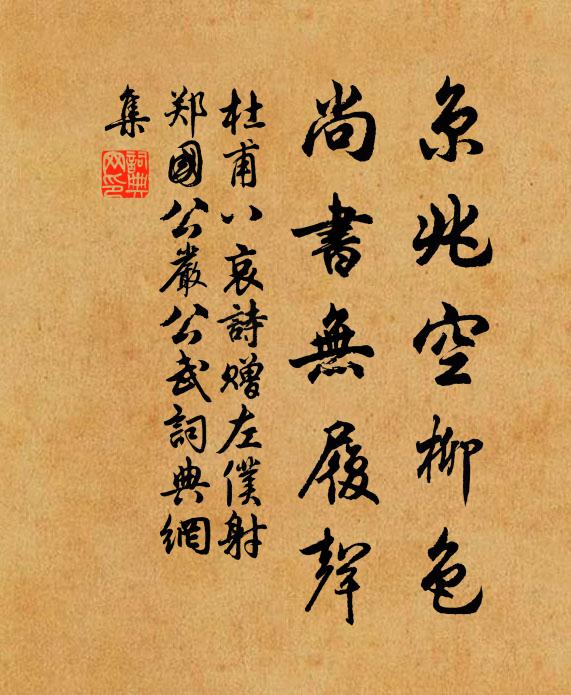 京兆空柳色
尚書無履聲
杜甫八哀詩贈左僕射
郑國公嚴公武詞典網
集
詞典
网印